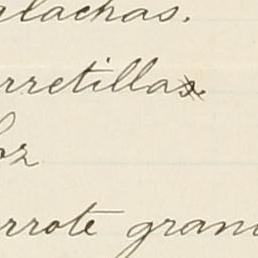 alachas.
rretilla.
oz
rrote gran